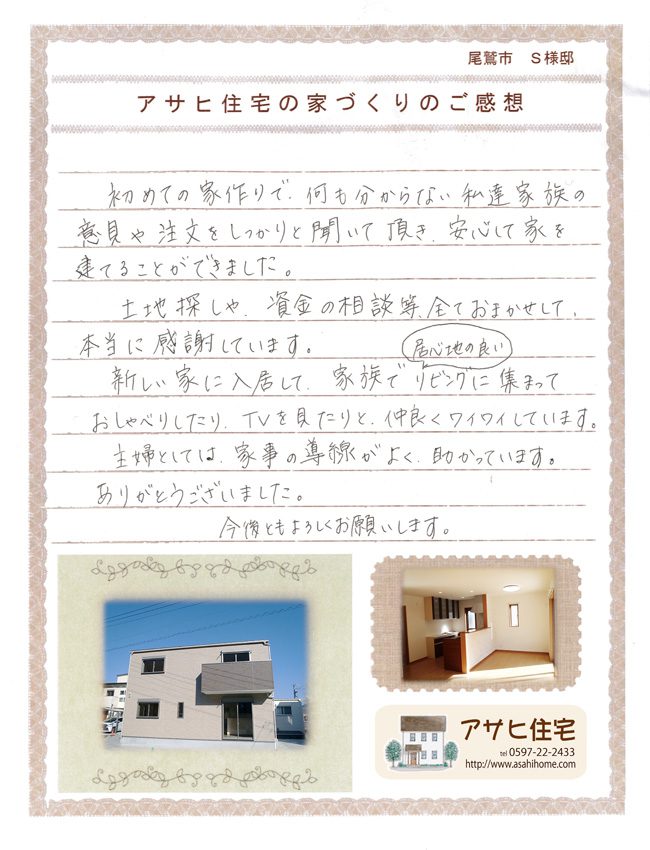 尾鷲市 S様邸
アサヒ住宅の家づくりのご感想
初めての家作りで、何も分からない私達家族の
意見や注文をしっかりと聞いて頂き、安心して家を
建てることができました。
土地探しや、資金の相談等、全ておまかせして、
本当に感謝しています。
居心地の良い
新しい家に入居して、家族でリビングに集まって
おしゃべりしたり、TVを見たりと、仲良くワイワイしています。
主婦としては、家事の導線がよく、助かっています。
ありがとうございました。
今後ともよろしくお願いします。
アサヒ住宅
tel 0597-22-2433
http://www.asahihome.com